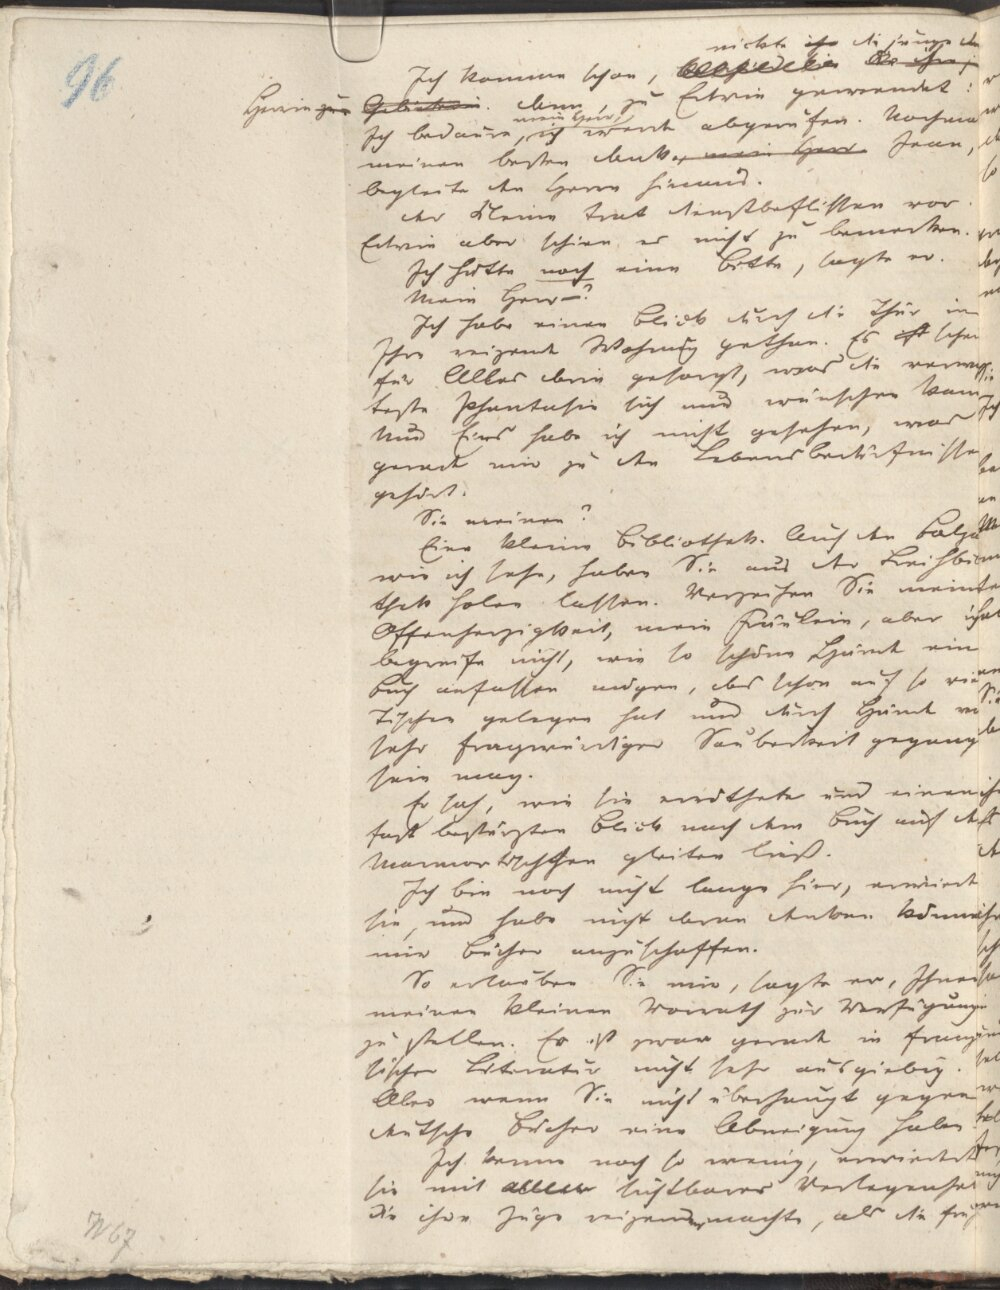 96
nickte ihr die junge
Ich komme schon,
Herrin zu. dann, zu Edwin gewendet:
mein Herr,
Ich bedaure, ich werde abgerufen. Nochmals
meinen besten Dank, mein Herr. Jean,
begleite den Herrn hinaus.
Der Kleine trat dienstbeflissen vor.
Edwin aber schien es nicht zu bemerken.
Ich hätte noch eine Bitte, sagte er.
Mein Herr—?
Ich habe einen Blick durch die Thür in
Ihre reizende Wohnung gethan. Es ist schei
für Alles drin gesorgt, was die verwegen
ste Phantasie sich nur wünschen kann
Nur Eins habe ich nicht gesehen, was
gerade mir zu den Lebensbedürfnissen
gehört.
Sie meinen?
Eine kleine Bibliothek. Auch den Balzac
wie ich sehe, haben Sie aus der Leihbiblio
thek holen lassen. Verzeihen Sie meine
Offenherzigkeit, mein Fräulein, aber ich
begreife nicht, wie so schöne Hände ein
Buch anfassen mögen, das schon auf so vielen
Tischen gelegen hat und durch Hände von
sehr fragwürdiger Sauberkeit gegangen
sein mag.
Er sah, wie sie erröthete und einen
fast bestürzten Blick nach dem Buch auf dem
Marmortischchen gleiten ließ.
Ich bin noch nicht lange hier, erwiederte
sie, und habe nicht daran denken können
mir Bücher anzuschaffen.
So erlauben Sie mir, sagte er, Ihnen
meinen kleinen Vorrath zur Verfügung
zu stellen. Er ist zwar gerade in franzö
sischer Literatur nicht sehr ausgiebig.
Aber wenn Sie nicht überhaupt gegen
deutsche Bücher eine Abneigung haben
Ich kenne noch so wenig, erwiederte
sie mit sichtbarer Verlegenheit
die ihre Züge reizender machte, als die
N67